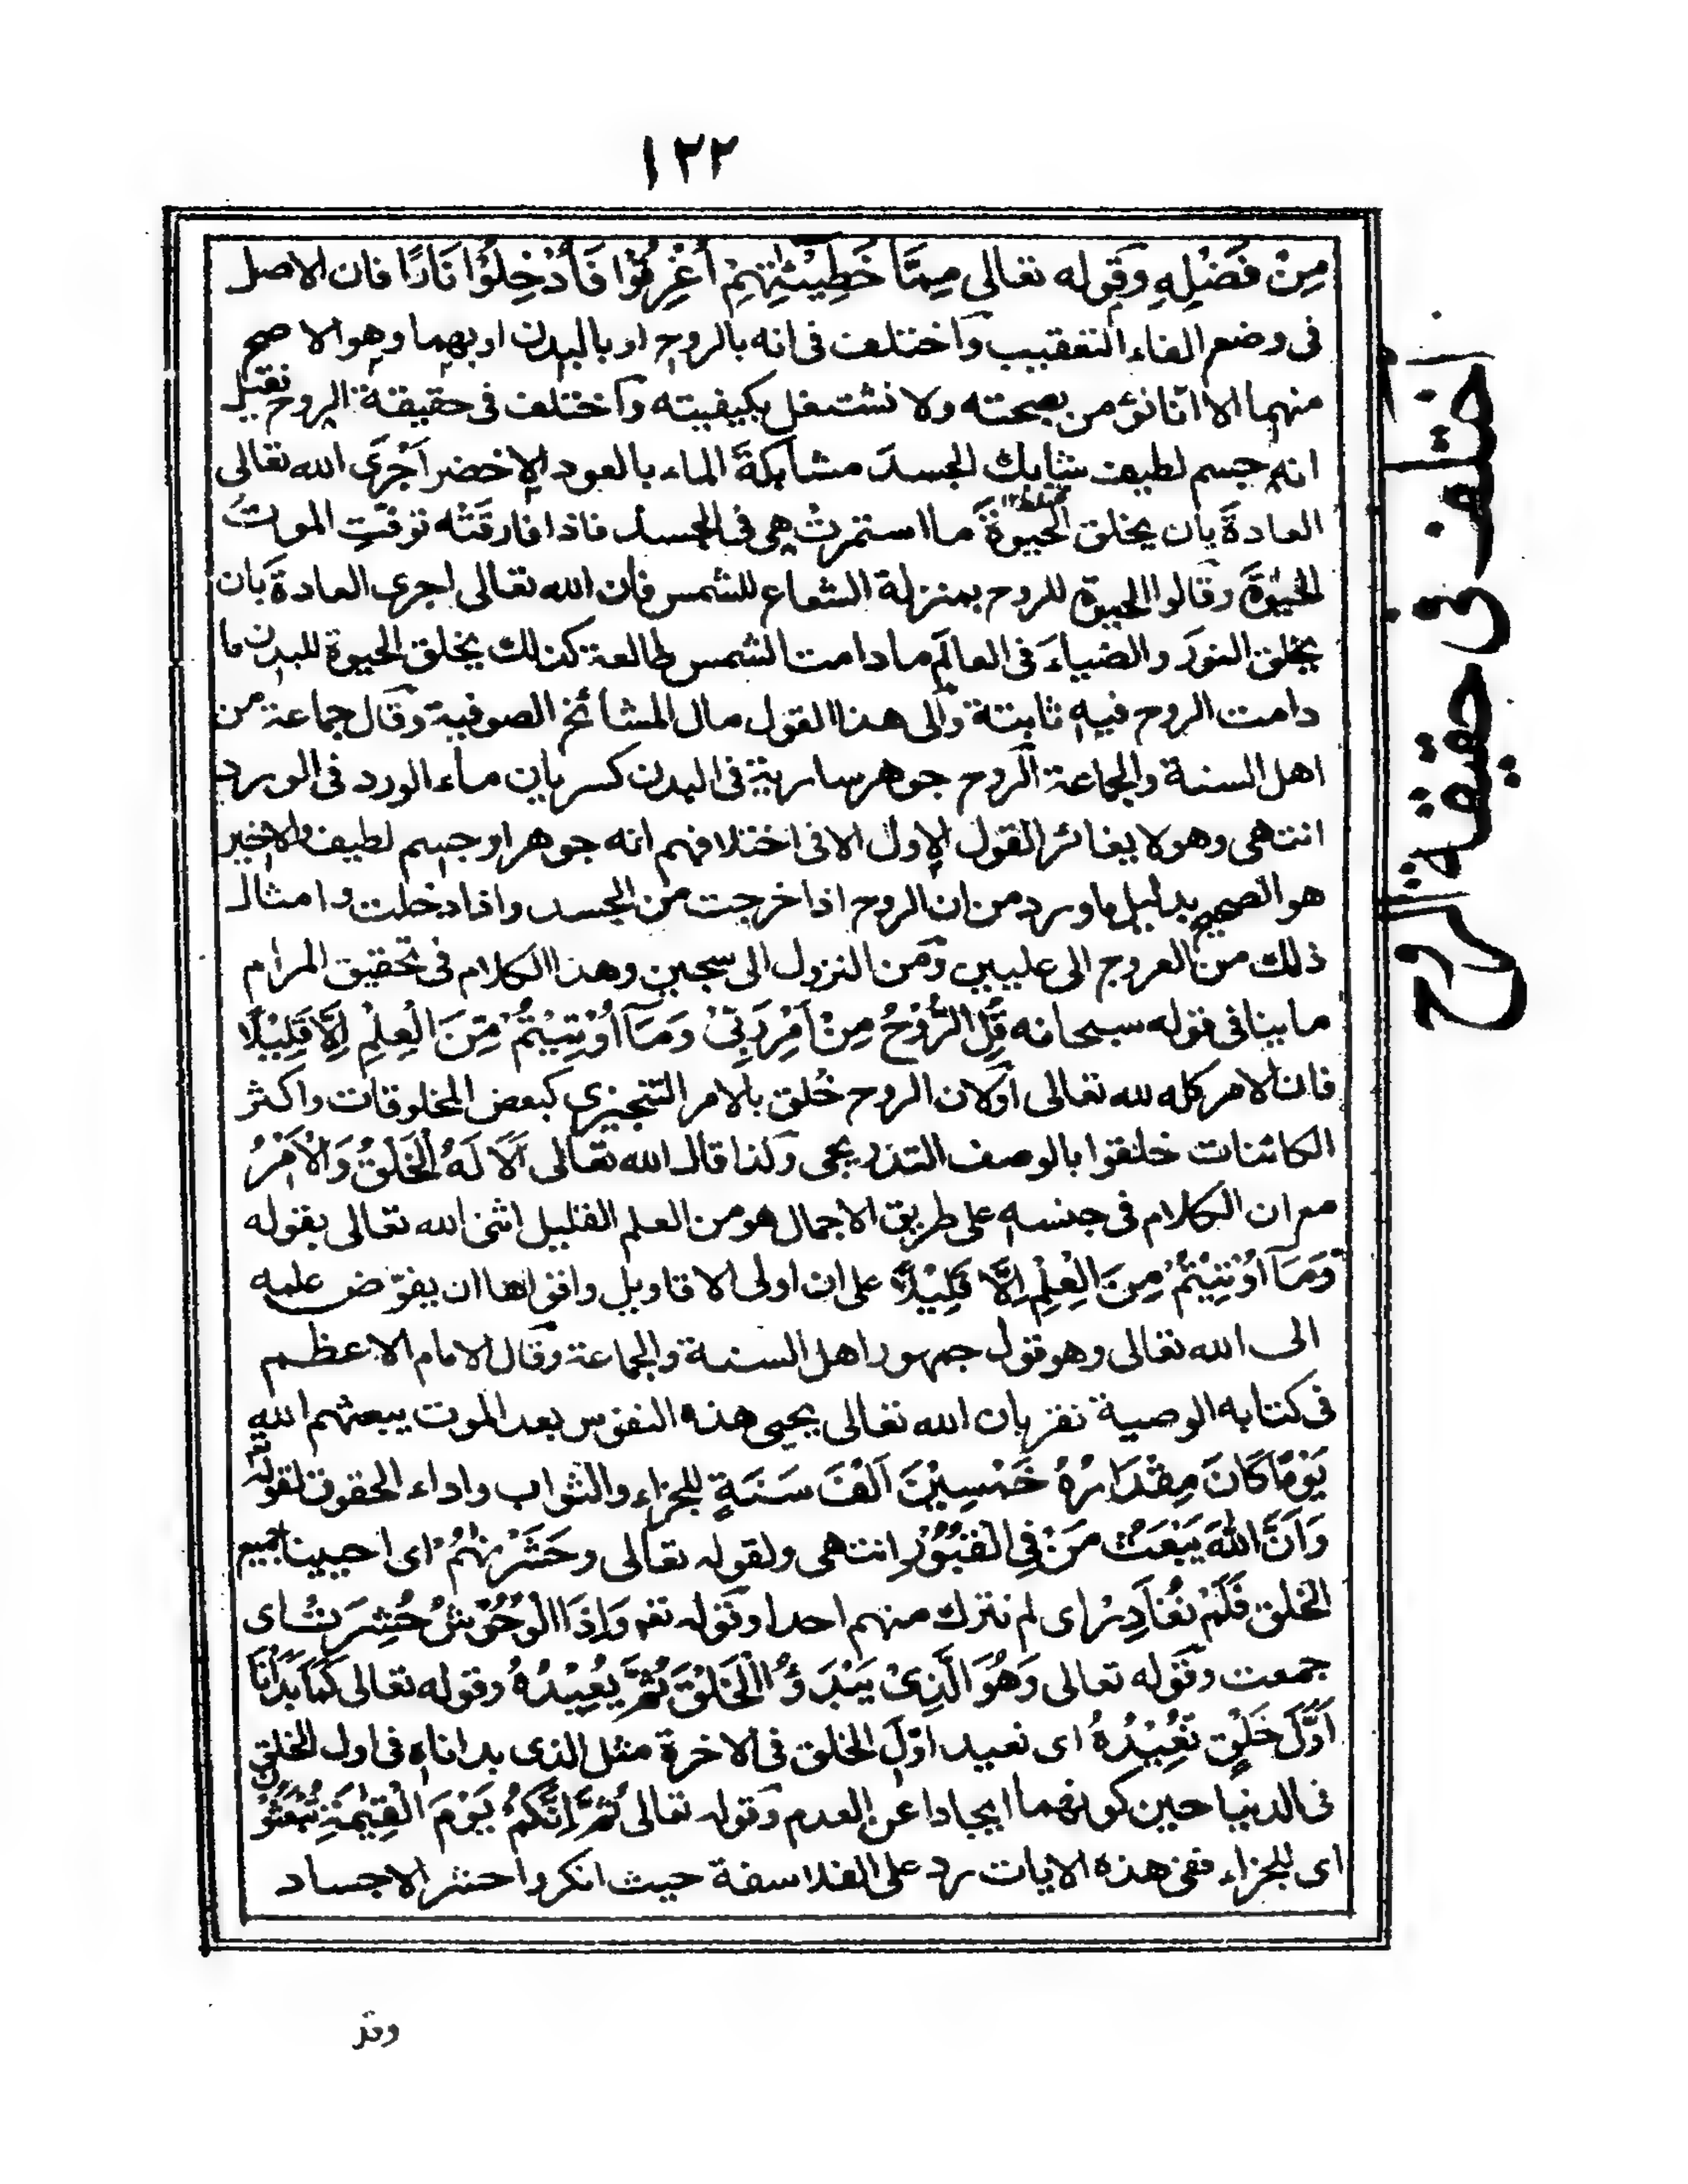 ١٢٢
مِنْ فَضْلِهٖ وقوله تعالى مِمَّا خَطِيْئٰتِهِمْ اُغْرِقُوْا فَاُدْخِلُوْا نَارًا فان الاصل
فى وضع الفاء التعقيب واختلف فى انه بالروح او بالبدن او بهما وهو الاصح
منهما الا انا نؤمن بصحته ولا نشتغل بكيفيته واختلف فى حقيقة الروح فقيل
انه جسم لطيف شابك الجسدَ مشابكةَ الماء بالعود الاخضر اَجْرَى الله تعالى
العادةَ بان يخلق الحيوةَ ما استمرتْ هى فى الجسد فاذا فارقَتْه توفتِ الموتُ
الحَيٰوةَ وقالوا الحيوة للروح بمنزلة الشعاع للشمس فان الله تعالى اجرى العادةَ بان
يخلق النورَ والضياءَ فى العالَم ما دامت الشمس طالعة كذلك يخلق الحيوة للبدن ما
دامت الروح فيه ثابتة والى هذا القول مال المشائخ الصوفية وقال جماعة من
اهل السنة والجماعة الروح جوهر سارية فى البدن كسريان ماء الورد فى الورد
انتهى وهو لا يغائر القول الاول الا فى اختلافهم انه جوهر او جسم لطيف والاخير
هو الصحيح بدليل ما ورد من ان الروح اذا خرجت من الجسد واذا دخلت وامثال
ذلك من العروج الى عليين ومن النزول الى سجين وهذا الكلام فى تحقيق المرام
ما ينافى قوله سبحانه قُلِ الرُّوْحُ مِنْ اَمْرِ رَبِّىْ وَمَآ اُوْتِيْتُمْ مِّنَ الْعِلْمِ اِلَّا قَلِيْلًا
فان الامر كله لله تعالى اَوْ لان الروح خُلق بالامر التنجيزى كبعض المخلوقات واكثر
الكائنات خلقوا بالوصف التدريجى ولذا قال الله تعالى اَلَا لَهُ الْخَلْقُ وَالْاَمْرُ
مع ان الكلام فى جنسه على طريق الاجمال هو من العلم القليل اثنى الله تعالى بقوله
وَمَآ اُوْتِيْتُمْ مِنَ الْعِلْمِ اِلَّا قَلِيْلًا على ان اولى الاقاويل واقواها ان يفوّض علمه
الى الله تعالى وهو قول جمهور اهل السنة والجماعة وقال الامام الاعظم
فى كتابه الوصية نقر بان الله تعالى يحيى هذه النفوس بعد الموت يبعثهم الله
يَوْمًا كَانَ مِقْدَارُهُ خَمْسِيْنَ اَلْفَ سَنَةٍ للجزاء والثواب واداء الحقوق لقوله تع
وَاَنَّ اللّٰهَ يَبْعَثُ مَنْ فِى الْقُبُوْرِ انتهى ولقوله تعالى وحَشَرْنٰهُمْ اى احيينا جميع
الخلق فَلَمْ نُغَادِرْ اى لم نترك منهم احدا وقوله تع وَاِذَا الْوُحُوْشُ حُشِرَتْ اى
جمعت وقوله تعالى وَهُوَ الَّذِىْ يَبْدَؤُ الْخَلْقَ ثُمَّ يُعِيْدُهُ وقوله تعالى كَمَا بَدَاْنَا
اَوَّلَ خَلْقٍ نُعِيْدُهُ اى نعيد اوّلَ الخلق فى الاخرة مثل الذى بداناه فى اول الخلق
فى الدنيا حين كونهما ايجادا عن العدم وقوله تعالى ثُمَّ اِنَّكُمْ يَوْمَ الْقِيٰمَةِ تُبْعَثُوْنَ
اى للجزاء ففى هذه الايات رد على الفلاسفة حيث انكروا حشر الاجساد
اختلف فى حقيقة الروح